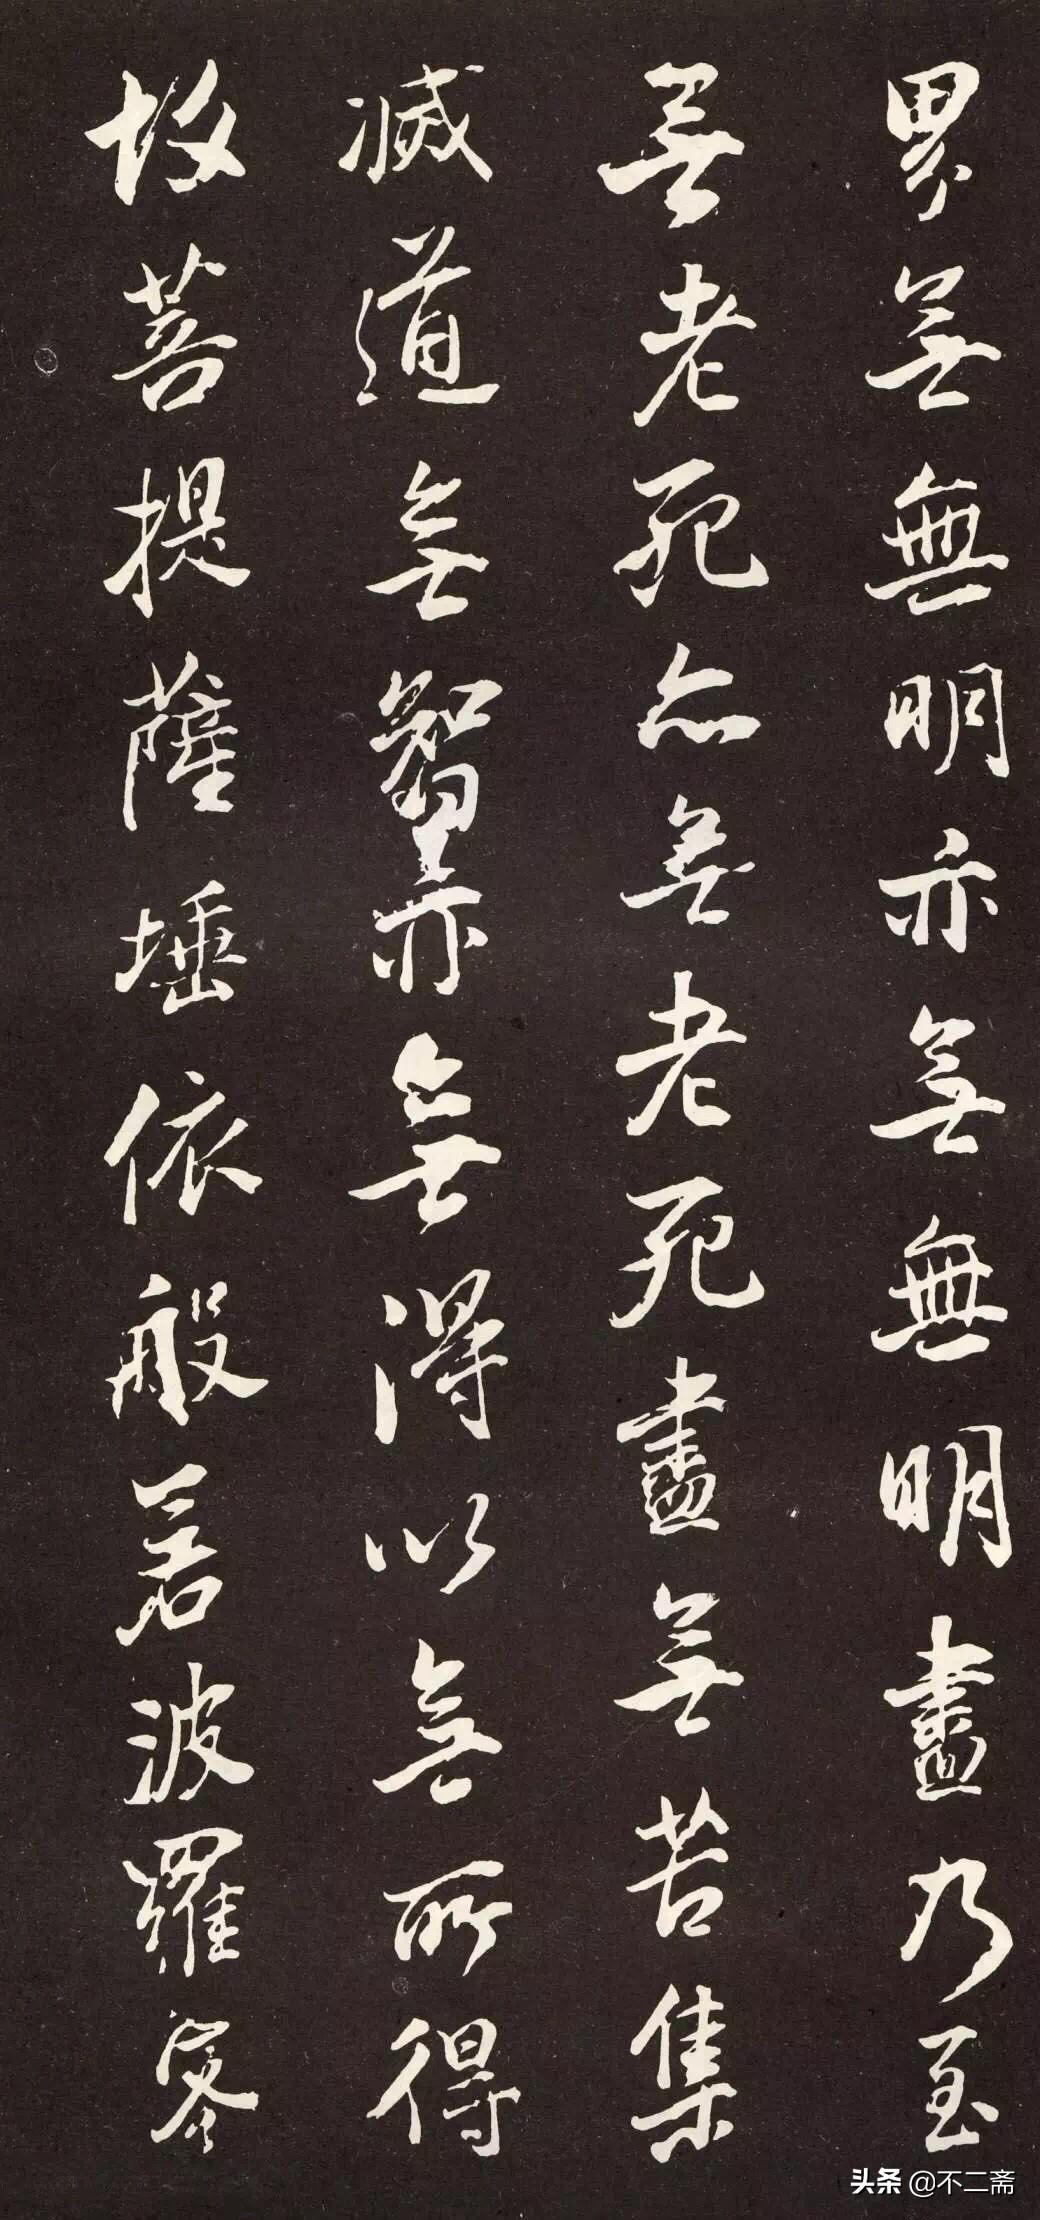 界無無明亦無無明盡乃至
無老死亦無老死盡無苦集
滅道無智亦無得以無所得
故菩提薩埵依般若波羅蜜
头条 @不二斋